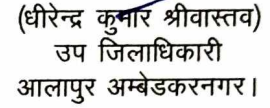 (धीरेन्द्र कुमार श्रीवास्तव)
उप जिलाधिकारी
आलापुर अम्बेडकरनगर।